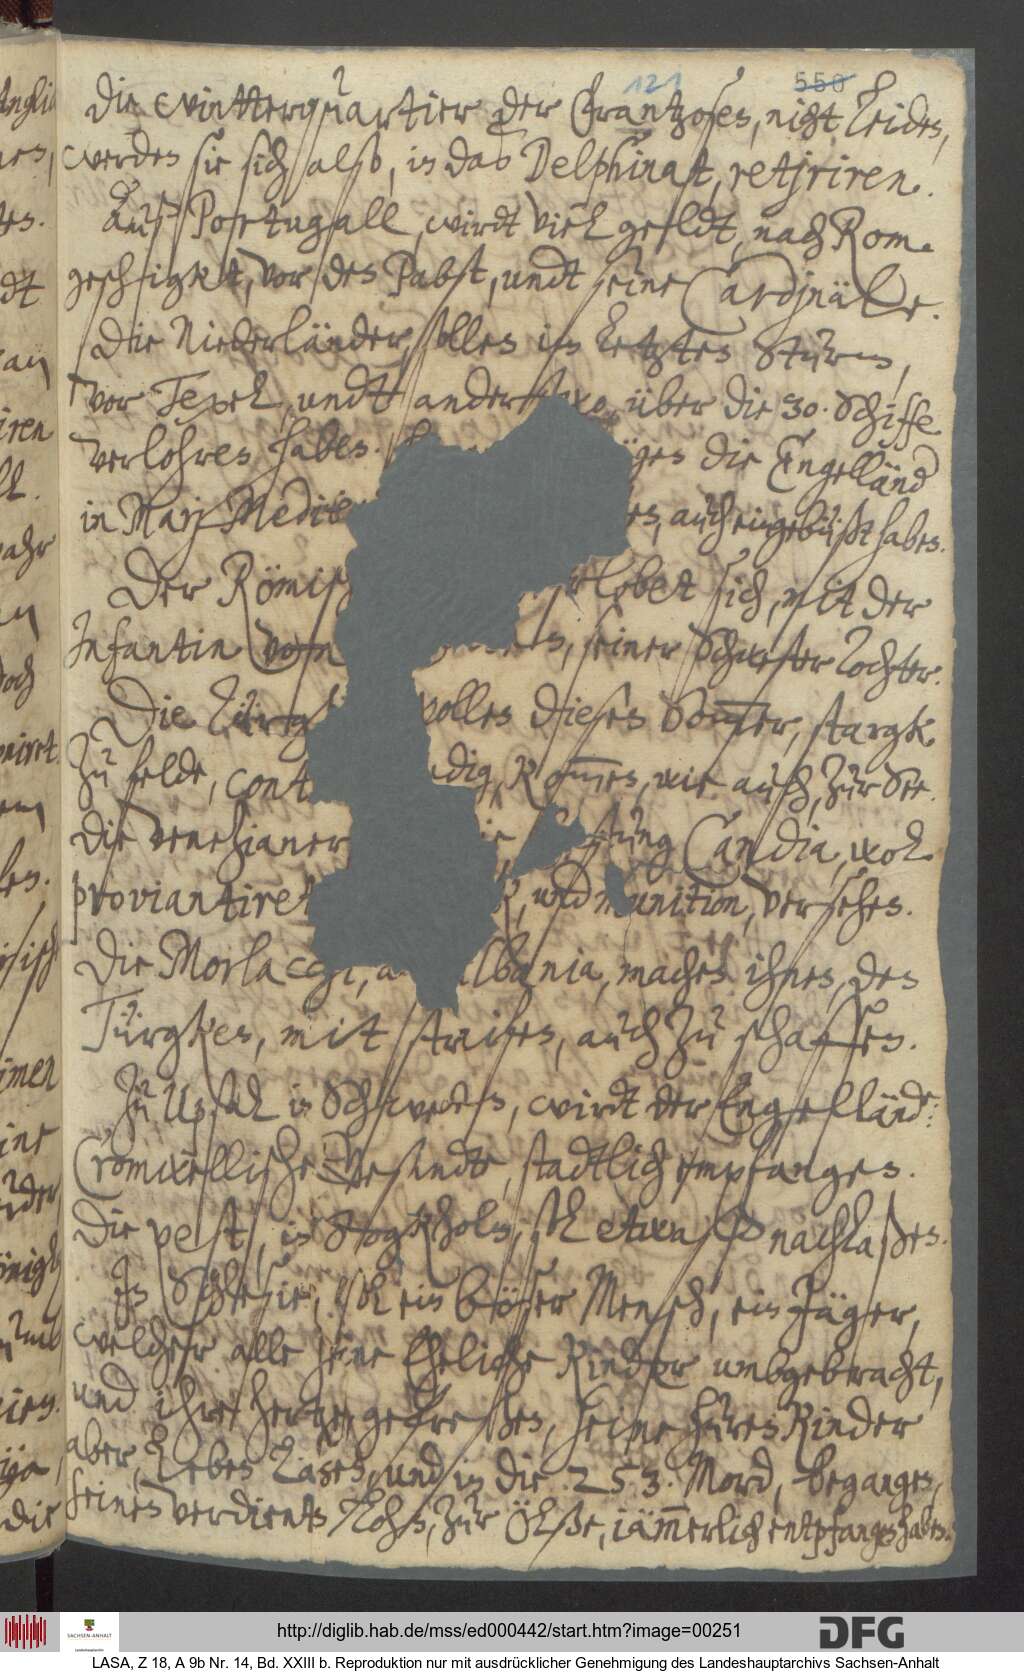 121 550
die winterquartier der Frantzosen, nicht leiden,
werden sie sich also, in das Delphinat, retjriren.
Auß Portugall, wirdt viel geldt, nach Rom.
geschigkt, vor den Pabst, undt seine Cardjnäle.
Die Niederländer, sollen im letzten Sturm,
vor Texel, undt anderstwo, über die 30. Schiffe
verlohren haben. gen die Engelländ
in Marj Medite en, auch eingebüßt haben.
Der Römisch verlobet sich, mit der
Infantin von en, seiner Schwester Tochter.
Die Türgk wollen diesen Som̅er, stargk
zu felde, cont edig, kom̅en, wie auch, zur See.
die Venetianer die Festung Candia, wol
proviantiret und munition, versehen.
Die Morlacchi, a Albania, machen ihnen, den
Türgken, mit straifen, auch zu schaffen.
Zu Upsal in Schweden, wirdt der Engelländ:
Cromwellische Gesandte, stadtlich empfangen.
Die pest, in Stogkholm, sol etwaß nachlaßen.
In Schlesien, sol ein böser Mensch, ein Jäger,
welcher alle seine Eheliche Kinder umbgebracht,
und ihre hertzen gefreßen, seine huren Kinder
aber, leben laßen, und in die 253. Mord, begangen,
seinen verdienten Lohn, zur Ölße, jäm̅erlich entpfangen haben.
http://diglib.hab.de/mss/ed000442/start.htm?image=00251
SACHSEN-ANHALT
DFG
LASA, Z 18, A 9b Nr. 14, Bd. XXIII b. Reproduktion nur mit ausdrücklicher Genehmigung des Landeshauptarchivs Sachsen-Anhalt